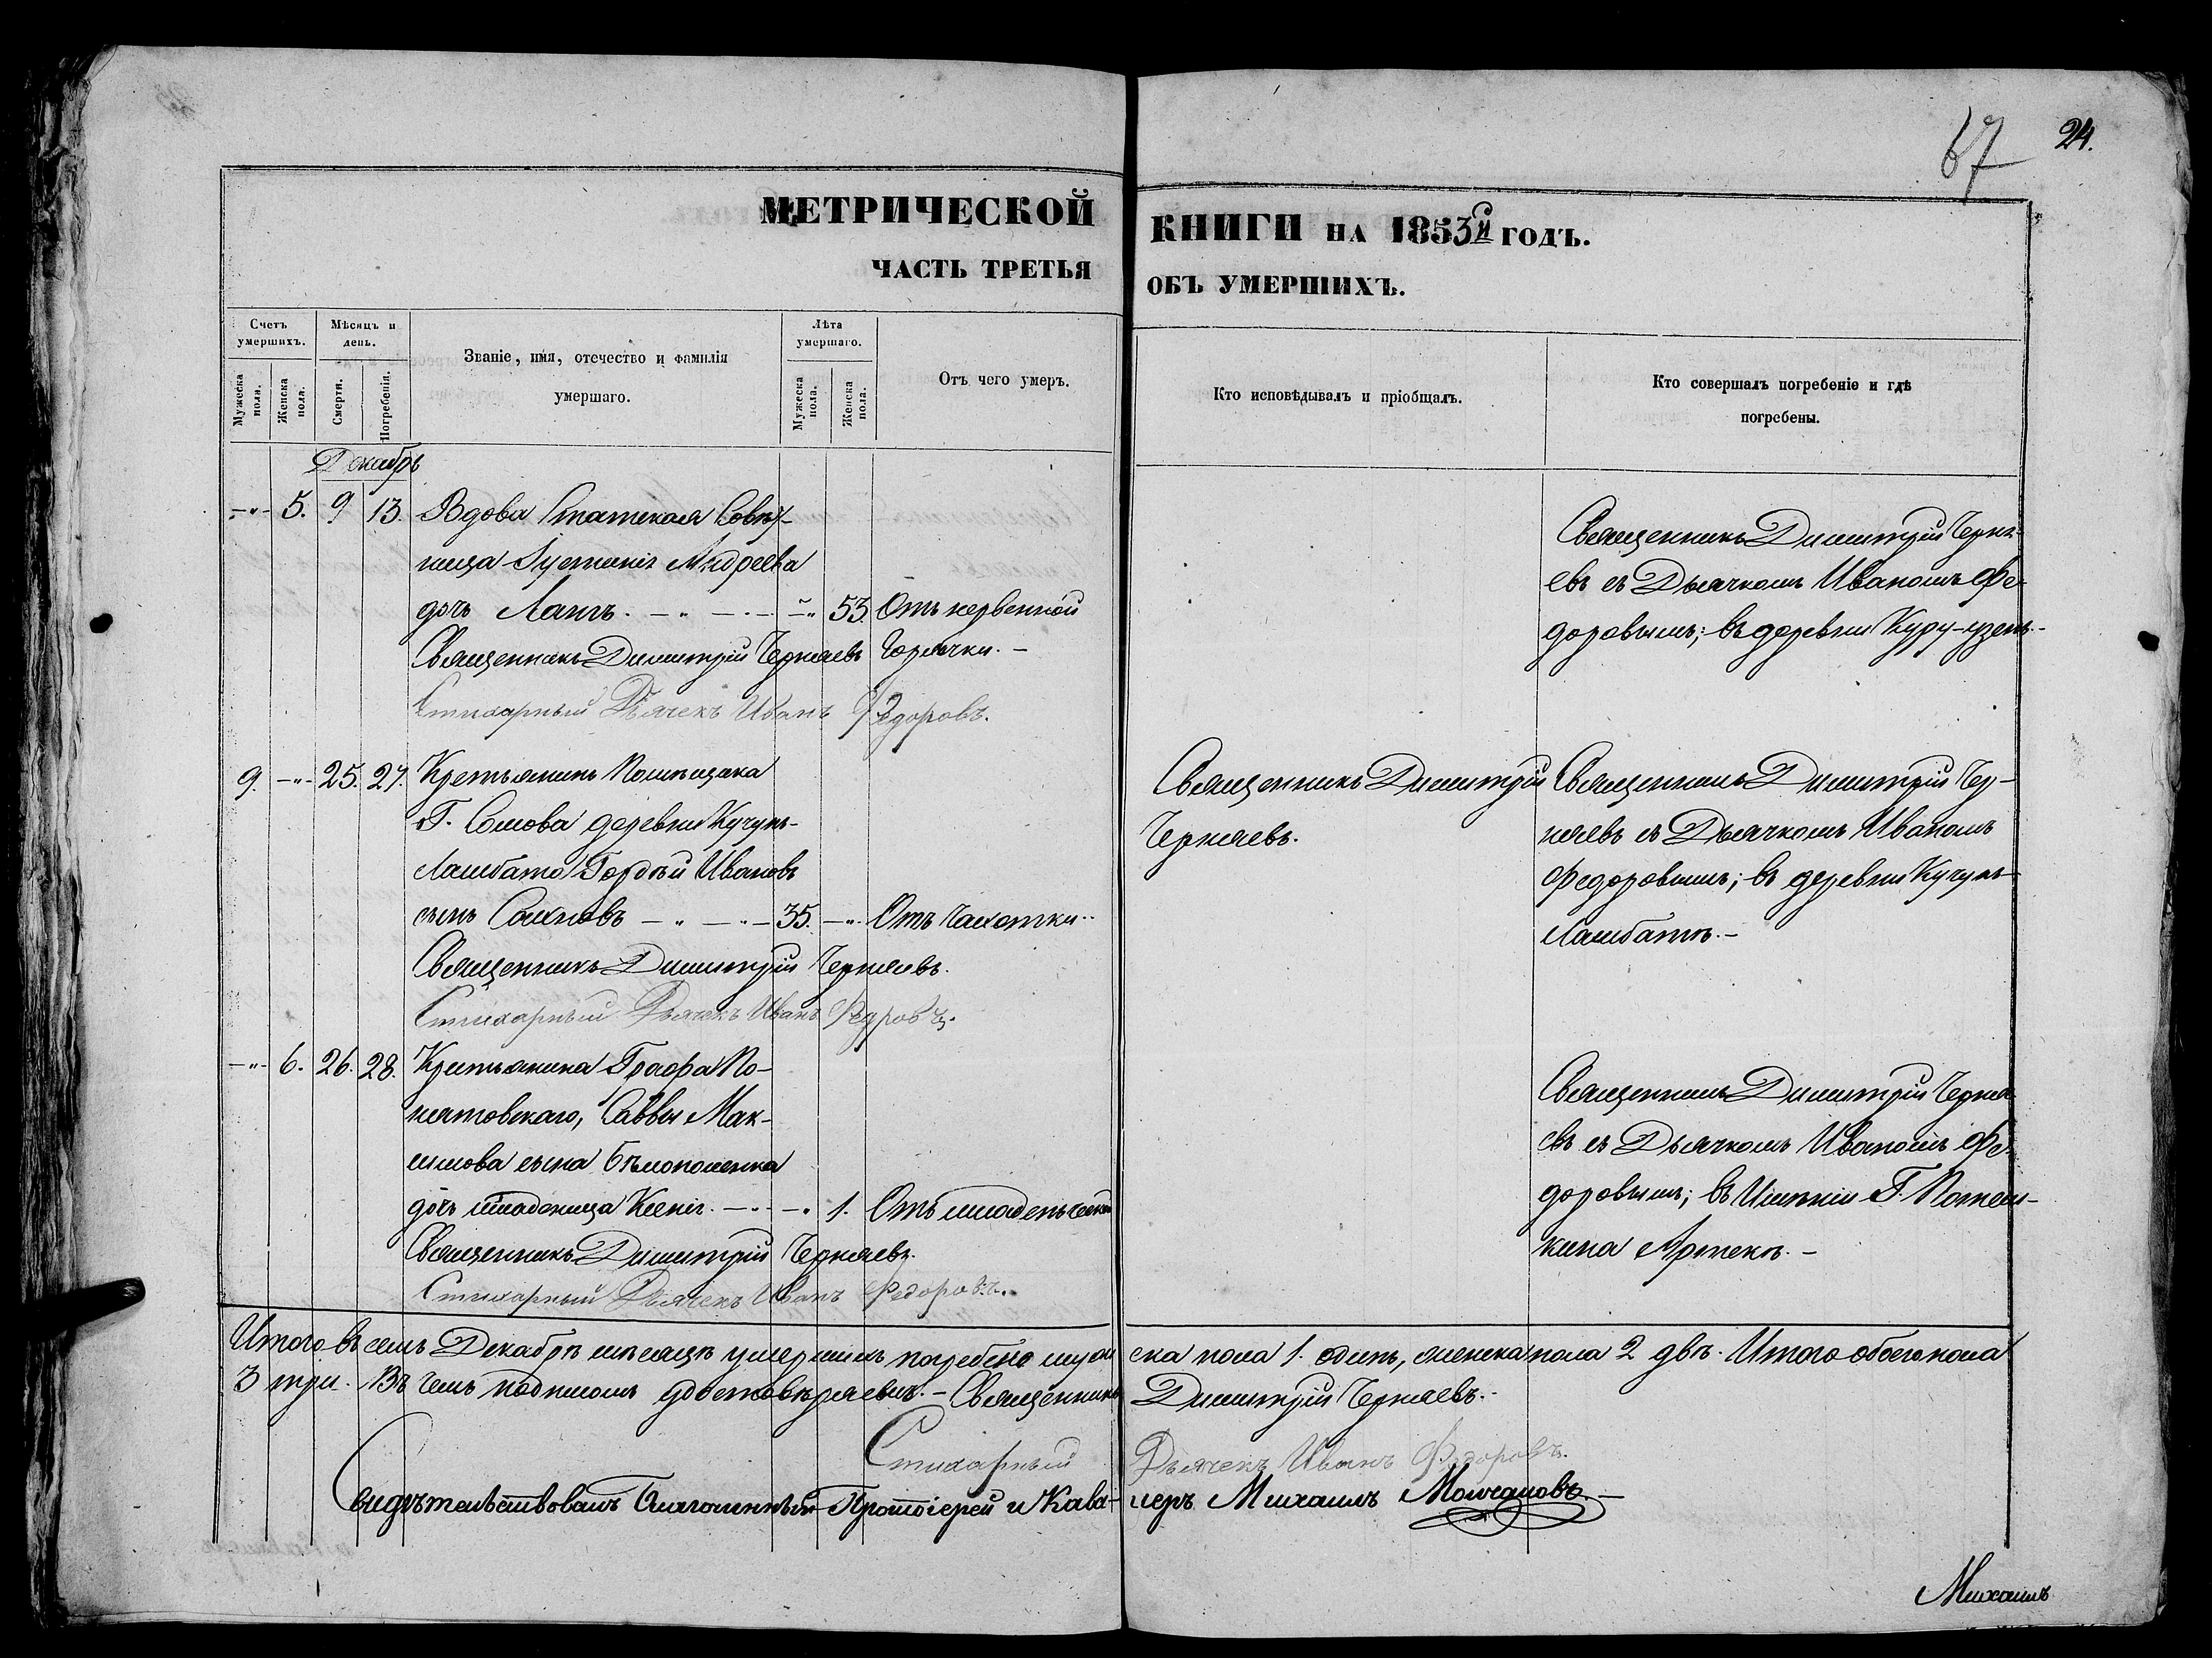 67 24.
МЕТРИЧЕСКОЙ КНИГИ НА 1853й ГОДЪ.
ЧАСТЬ ТРЕТЬЯ ОБЪ УМЕРШИХЪ.
Счетъ умершихъ.
Мѣсяцъ и день.
Званіе, имя, отечество и фамилія умершаго.
Лѣта умершаго.
Отъ чего умеръ.
Кто исповѣдывалъ и пріобщалъ.
Кто совершалъ погребеніе и гдѣ погребены.
Мужеска пола.
Женска пола.
Смерти.
Погребенія.
Мужеска пола.
Женска пола.
Декабрь
-"- 5. 9 13. Вдова Статская Совѣт-
ница Андреева
дочь Лангъ. - " - - " 53. Отъ нервенной
Священникъ Димитрій Черняевъ горячки. -
Стихарный Дьячекъ Иванъ Федоровъ.
Священникъ Димитрій Черня-
евъ съ Дьячкомъ Иваномъ Фе-
доровымъ; въ деревни Куру-узень.-
9. -"- 25. 27. Крестьянинъ Помѣщика
Г. Сомова деревни Кучукъ-
Ламбата Гордѣй Ивановъ
сынъ - " - " - 35. -"- Отъ чахотки..
Священникъ Димитрій Черняевъ.
Стихарный Дьячекъ Иванъ Федровъ.
Священникъ Димитрій
Черняевъ.
Священникъ Димитрій Чер-
няевъ съ Дьячкомъ Иваномъ
Федоровымъ; въ деревни Кучукъ-
Ламбатѣ.-
-"- 6. 26. 28. Крестьянина Графа По-
нятовскаго, Саввы Мак-
симова сына
дочь младеница Ксенія. - " - " 1. Отъ младенческой
Священникъ Димитрій Черняевъ.
Стихарный Дьячекъ Иванъ Федоровъ.
Священникъ Димитрій Черня-
евъ съ Дьячкомъ Иваномъ Фе-
доровымъ; въ Имѣніи Г. Потем-
кина Артекъ. -
Итого въ семъ Декабрѣ мѣсяцѣ умершихъ погребено мужеска пола 1. одинъ, женска пола 2 двѣ. Итого обоего пола
3 три. Въ чемъ подписомъ удостовѣряемъ. - Священникъ Димитрій Черняевъ.-
Стихарный Дьячекъ Иванъ Федоровъ.
Свидѣтельствовалъ Благочинный Протоіерей и Кавалеръ Михаилъ Молчановъ. -
Михаилъ